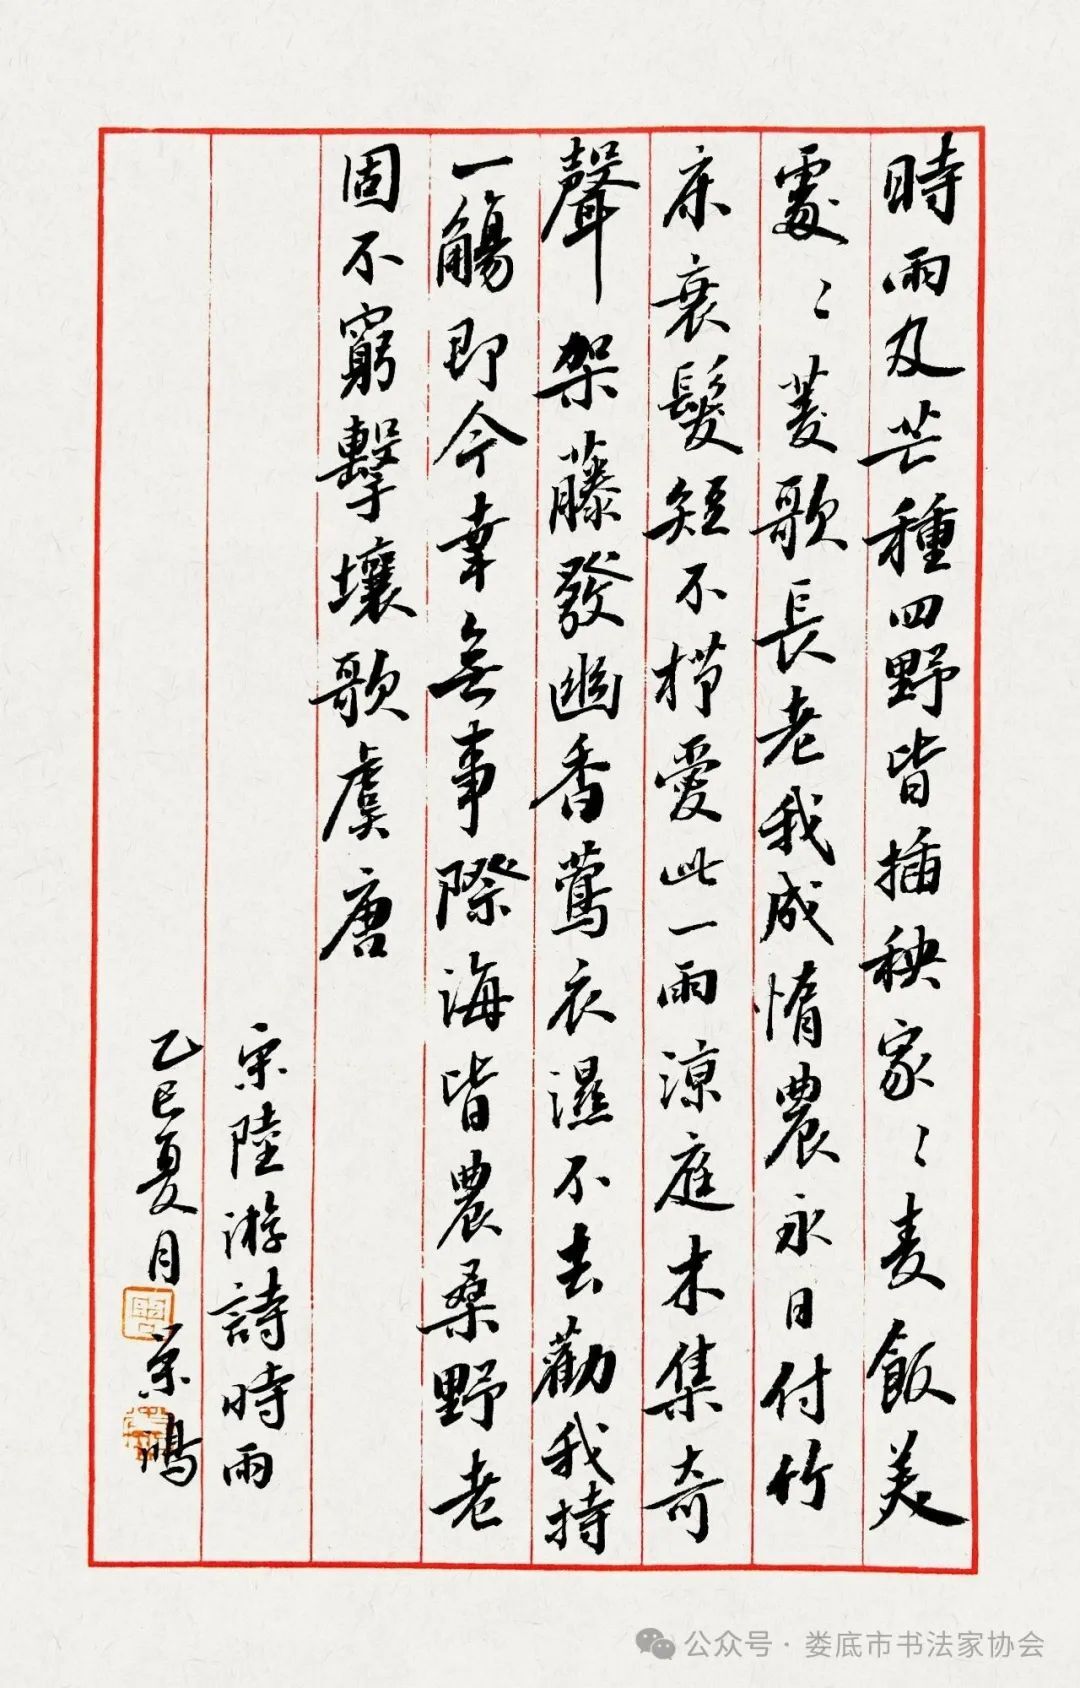 時雨及芒種四野皆插秧家〻麦飯美
處〻菱歌長老我成惰農永日付竹
床衰髮短不栉愛此一雨涼庭木集奇
聲架藤發幽香鶯衣濕不去勸我持
一觴即今幸無事際海皆農桑野老
固不窮擊壤歌虞唐
宋陸游詩時雨
乙巳夏月
公众号·娄底市书法家协会